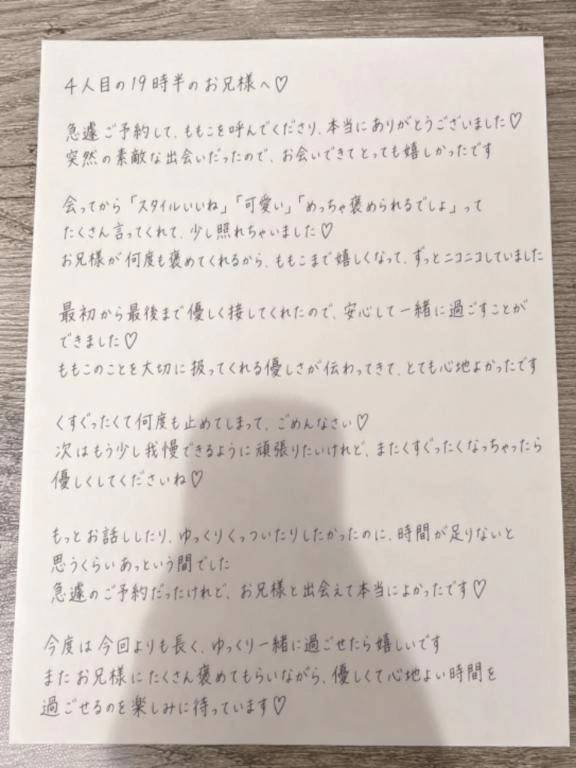 4人目の19時半のお兄様へ♡
急遽ご予約して、ももこを呼んでくださり、本当にありがとうございました♡
突然の素敵な出会いだったので、お会いできてとっても嬉しかったです
会ってから「スタイルいいね」「可愛い」「めっちゃ褒められるでしょ」って
たくさん言ってくれて、少し照れちゃいました♡
お兄様が何度も褒めてくれるから、ももこまで嬉しくなって、ずっとニコニコしていました
最初から最後まで優しく接してくれたので、安心して一緒に過ごすことが
できました♡
ももこのことを大切に扱ってくれる優しさが伝わってきて、とても心地よかったです
くすぐったくて何度も止めてしまって、ごめんなさい♡
次はもう少し我慢できるように頑張りたいけれど、またくすぐったくなっちゃったら
優しくしてくださいね♡
もっとお話ししたり、ゆっくりくっついたりしたかったのに、時間が足りないと
思うくらいあっという間でした
急遽のご予約だったけれど、お兄様と出会えて本当によかったです♡
今度は今回よりも長く、ゆっくり一緒に過ごせたら嬉しいです
またお兄様にたくさん褒めてもらいながら、優しくて心地よい時間を
過ごせるのを楽しみに待っています♡